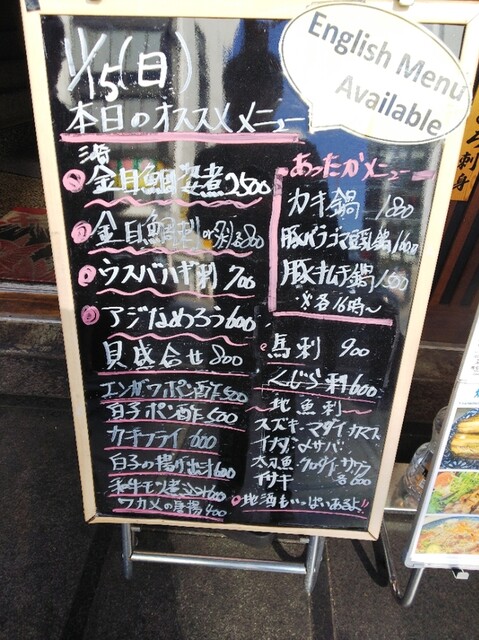 11/15(日)
本日のオススメメニュー
English Menu
Available
金目鯛姿煮 2500
金目鯛刺
ウスバハギ刺 700
アジなめろう 600
貝盛合せ 800
エンガワポン酢 500
白子ポン酢 500
カキフライ 600
白子の揚げ出汁 600
和牛モツ煮込み 600
ワカメの唐揚 400
あったかメニュー
カキ鍋 1800
豚バラゴマ豆乳鍋
豚キムチ鍋 1500
※各16時〜
馬刺 900
くじら刺 600
〜地魚刺〜
スズキ・マダイ・カマス
イナダ・〆サバ・
太刀魚・クロダイ・サワラ
イサキ 各600
地酒もいっぱいあるよ!!
刺身